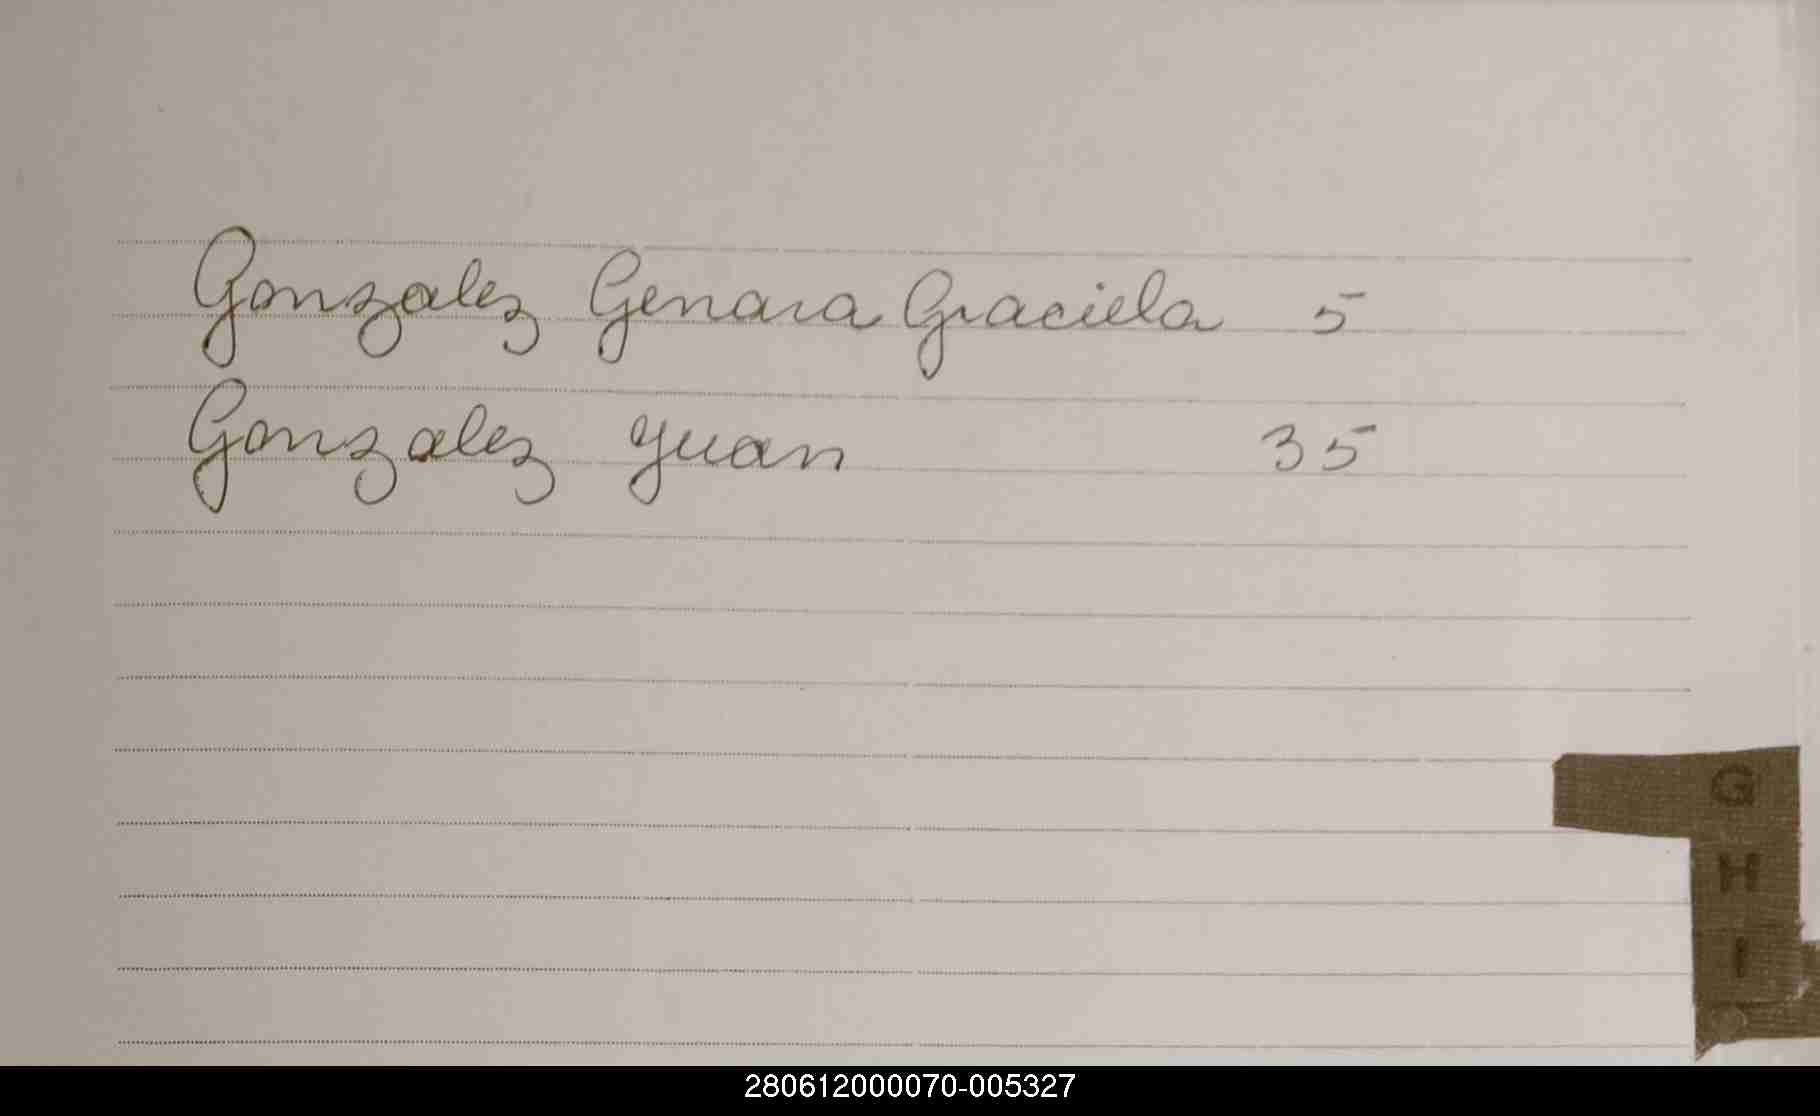 Gonzalez Genara Graciela 5
Gonzalez Juan 35
G
H
I
280612000070-005327